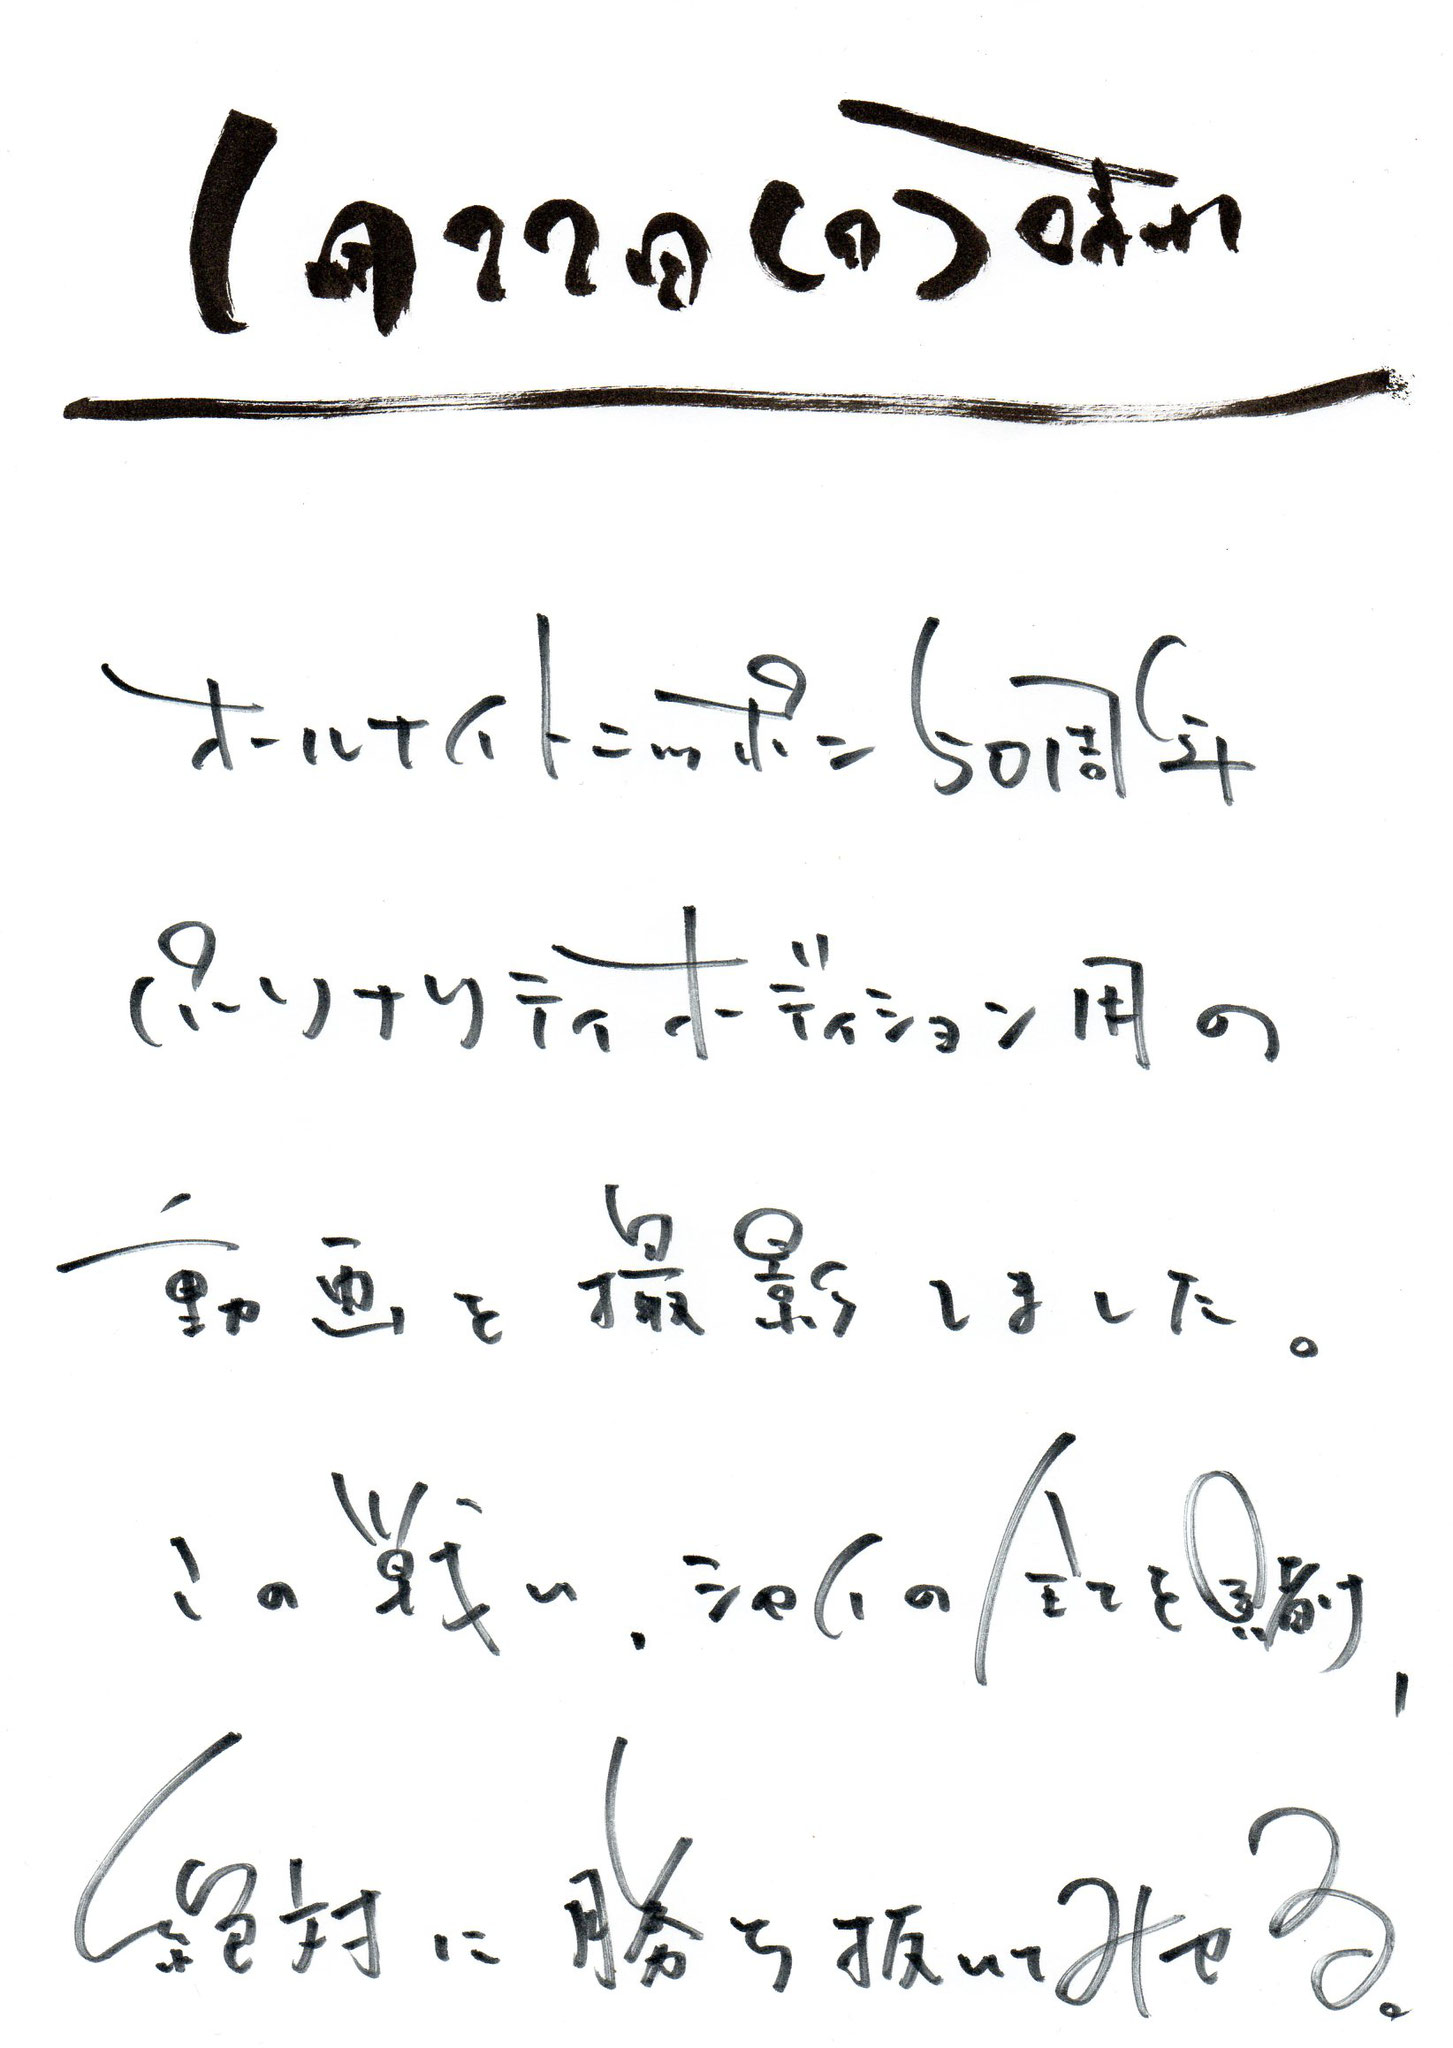 1月22日(日) 晴れ
オールナイトニッポン50周年
パーソナリティオーディション用の
動画を撮影しました。
この戦い、シャイの全てを賭け、
絶対に勝ち抜いてみせる。